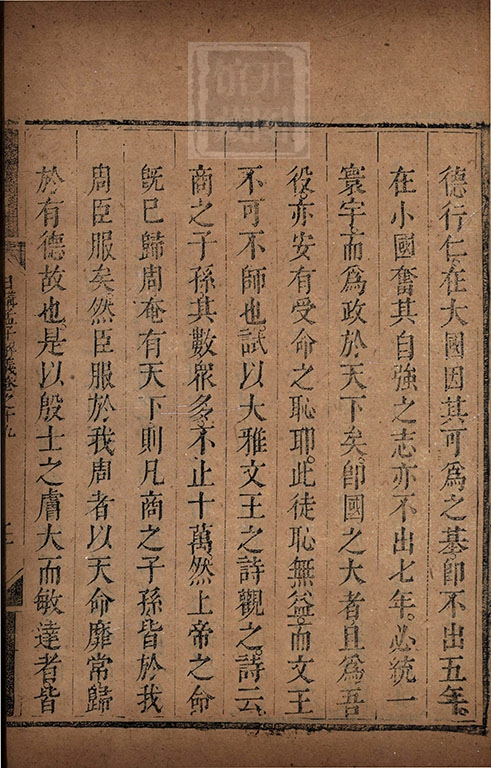 德行仁在大國因其可為之基即不出五年
在小國奮其自強之志亦不出七年必統一
寰宇而為政於天下矣即國之大者且為吾
役亦安有受命之恥耶此徒恥無益而文王
不可不師也試以大雅文王之詩觀之詩云
商之子孫其數眾多不止十萬然上帝之命
既已歸周奄有天下則凡商之子孫皆於我
周臣服矣然臣服於我周者以天命靡常歸
於有德故也是以殷士之膚大而敏達者皆